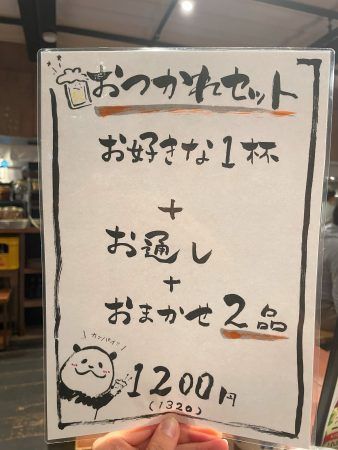 おつかれセット
お好きな1杯
+
お通し
+
おまかせ2品
カンパイ!!
1200円
(1320)